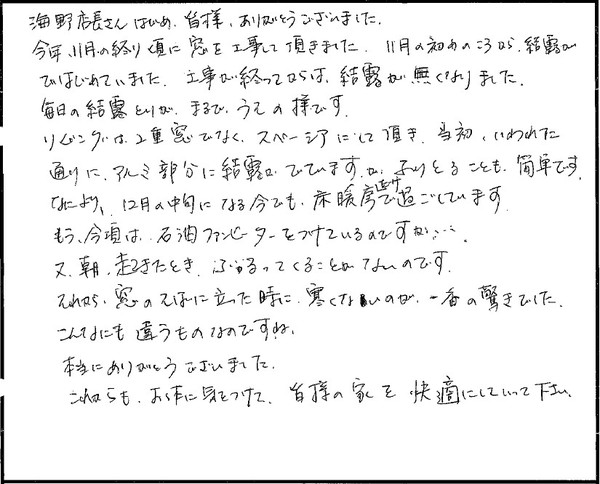 海野店長さんはじめ、皆様、ありがとうございました。
今年、11月の終り頃に窓を工事して頂きました。11月の初めのころから、結露が
ではじめていました。工事が終ってからは、結露が無くなりました。
毎日の結露とりが、まるで、うその様です。
リビングは、2重窓でなく、スペーシアにして頂き、当初、いわれた
通りに、アルミ部分に結露がでていますが、ふきとることも、簡単です。
なにより、12月の中旬になる今でも、床暖房だけで過ごしています。
もう、今頃は、石油ファンヒーターをつけているのですが・・・。
又、朝、起きたとき、ぶるってくることがないのです。
それから、窓のそばに立った時に、寒くないのが、一番の驚きでした。
こんなにも違うものなのですね。
本当にありがとうございました。
これからも、お体に気をつけて、皆様の家を快適にしていって下さい。